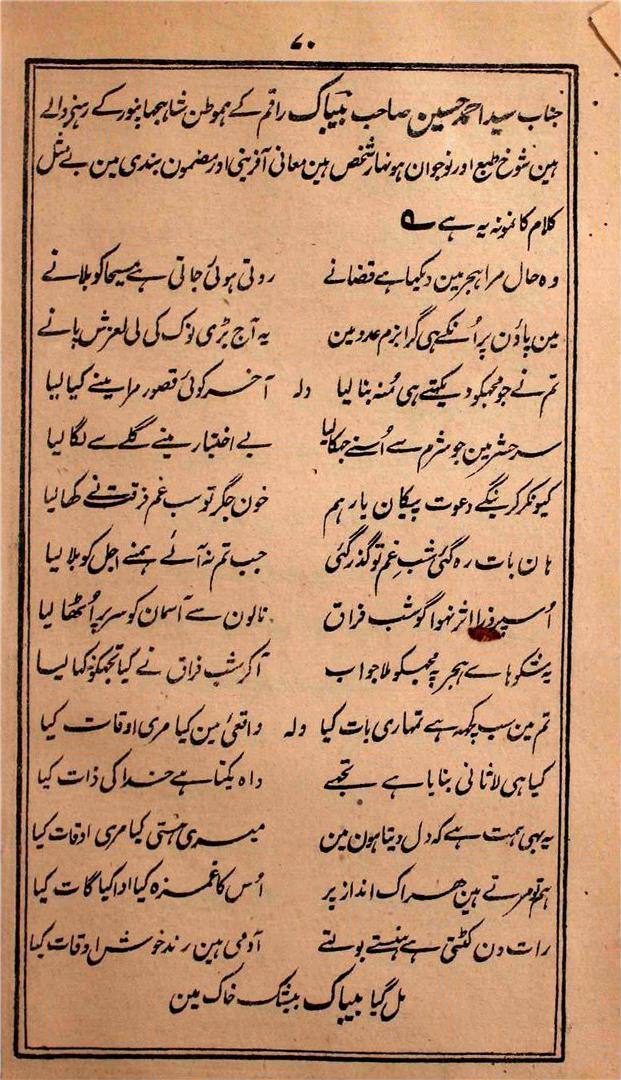 ۷۰
جناب سید احمد حسین صاحب بیباک راقم کے ہموطن شاہجہانپور کے رہنے والے
ہین شوخ طبع اور نوجوان ہونہار شخص ہین معانی آفرینی اور مضمون بندی مین بے مثل
کلام کا نمونہ یہ ہے
وہ حال مرا ہجر مین دیکھا ہے قضا نے روتی ہوئی جاتی ہے مسیحا کو بلانے
مین پاؤن پر اُنکے ہی گرا بزم عدو مین یہ آج بڑی نوک کی لی لغزش پا نے
تم نے جو مجھکو دیکھتے ہی مُنہ بنا لیا ولہ آخر کوئی قصور مرا مینے کیا لیا
سر حشر مین جو شرم سے اُسنے جھکا لیا بے اختیار مینے گلے سے لگا لیا
کیونکر کرینگے دعوت پیکان یار ہم خون جگر تو سب غم فرقت نے کھا لیا
ہان بات رہ گئی شب غم تو گذر گئی جب تم نہ آئے ہمنے اجل کو بلا لیا
اُسپر ذرا اثر نہوا گو شب فراق نالون سے آسمان کو سر پر اُٹھا لیا
یہ شکوہاے ہجر پہ مجھکو ملا جواب آکر شب فراق نے کیا تجھکو کھا لیا
تم مین سب کچھ ہے تمہاری بات کیا ولہ واقعی مین کیا مری اوقات کیا
کیا ہی لاثانی بنایا ہے تجھے واہ یکتا ہے خدا کی ذات کیا
یہ بھی ہمت ہے کہ دل دیتا ہون مین میری ہستی کیا مری اوقات کیا
ہم تو مرتے ہین ہر اک انداز پر اُس کا غمزہ کیا ادا کیا گات کیا
رات دن کٹتی ہے ہنستے بولتے آدمی ہین رند خوش اوقات کیا
مل گیا بیباک بیشک خاک مین